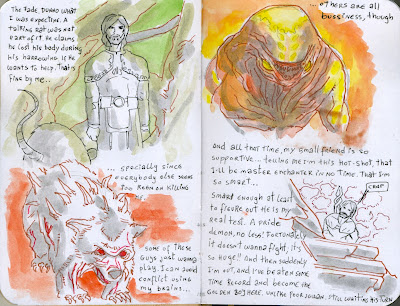 The Fade. Dunno what
I was expecting. A
talking rat was not
part of it. He claims
he lost his body during
his harrowing. If he
wants to help, that is
fine by me...
... specially since
everybody else seems
too keen on killing
me.
Some of these
guys just wanna
play. I can avoid
conflict using
my brains...
... others are all
bussiness, though
and all that time, my small friend is so
supportive... telling me I'm this hot-shot, that
I'll be master enchanter in no time. That I'm
so smart...
Smart enough at least
to figure out he is my
real test. A pride
demon, no less! Fortunately
it doesn't wanna fight, it's
so huge!! And then suddenly
I'm out, and I've beaten some
time record and become the
golden boy here. While poor Jowan still waiting his turn
CRAP